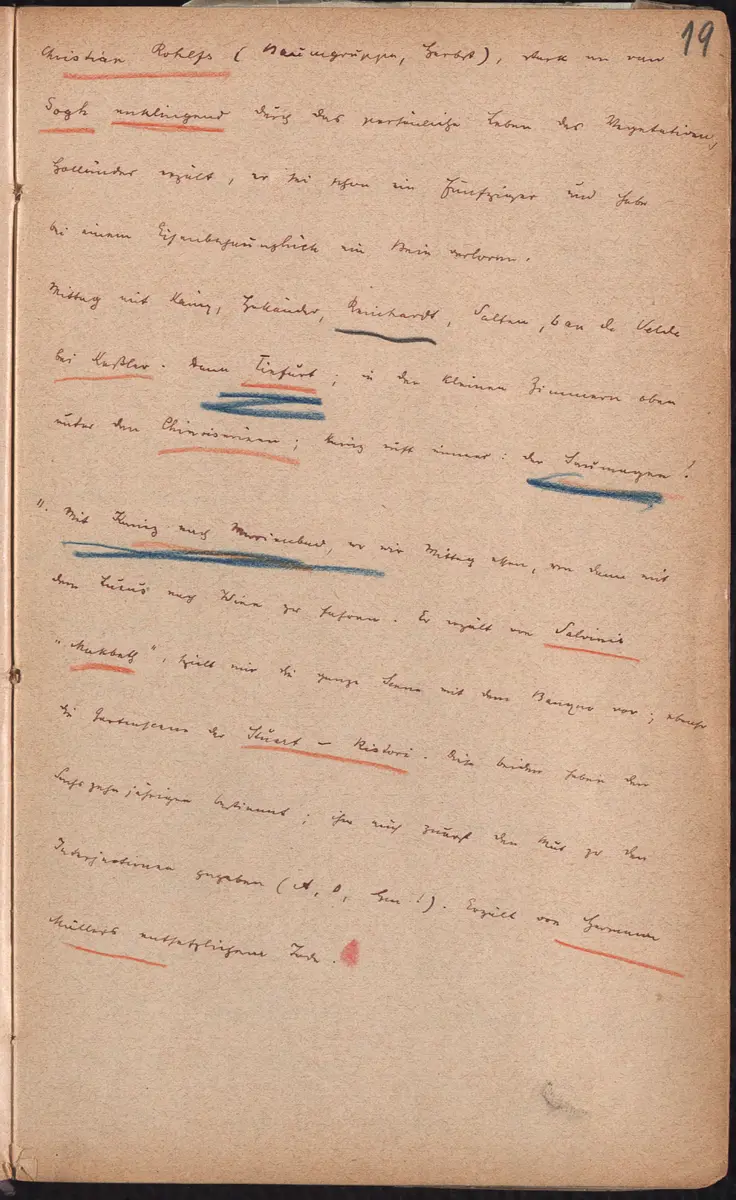 19
Christian Rohlfs (Baumgruppe, Herbst), stark an van
Gogh anklingend durch das persönliche Leben der Vegetation,
Holländer erzält, er sei schon ein Fünfziger und habe
bei einem Eisenbahnunglück ein Bein verloren.
Mittag mit Kainz, Holländer, Reinhardt, Salten, Van de Velde
bei Keßler. Dann Tiefurt; in den kleinen Zimmern oben
unter den Chinoiserien; Kainz ruft immer: der Saumagen!
11. Mit Kainz nach Marienbad, wo wir Mittag essen, um dann mit
dem Luxus nach Wien zu fahren. Er erzält von Salvinis
"Makbeth", spielt mir die ganze Scene mit dem Banquo vor; ebenso
die Gartenscene der Stuart – Ristori. Diese beiden haben den
Sechszehnjährigen bestimmt; ihm auch zuerst den Mut zu den
Interjectionen gegeben (A, O, Hm!). Erzält von Hermann
Müllers entsetzlichem Tode.